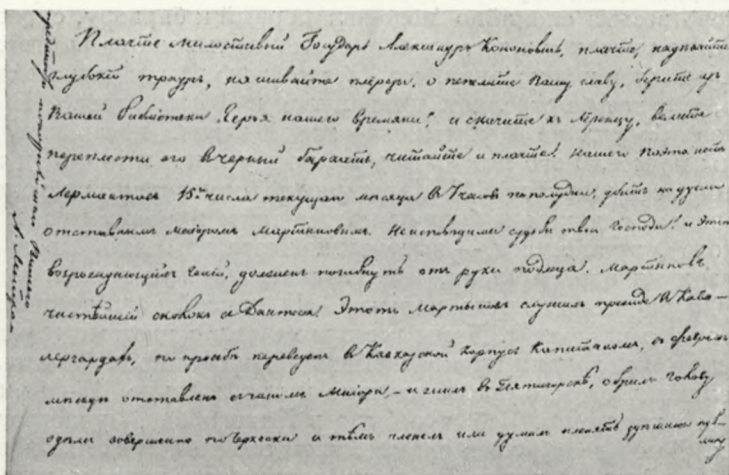 Плачьте милостивый Государь Александръ Кононовичь, плачьте, надѣвайте
глубокій трауръ, нашивайте плерезы, опепелите Вашу главу, берите изъ
Вашей библіотеки Героя нашего Времяни! и скачите къ Лереицу, велите
переплести его въ черный бархатъ, читайте и плачьте! Нашего поэта нетъ
Лермантовъ 15го числа текущаго мѣсяца въ 7 часовъ пополудни, убитъ на дуели
отставнымъ маіоромъ Мартыновымъ. Неисповѣдимы судьбы твои Господи! и этотъ
возрождающійся геній, долженъ погибнуть отъ руки подлеца. Мартыновъ
чистѣйшій сколокъ съ Дантеса! Этотъ Мартыновъ служилъ прежде въ Кава-
лергардахъ, по просьбѣ переведенъ въ Кавказской корпусъ Капитаномъ, въ февралѣ
мѣсяцѣ отставленъ съ чиномъ Маіора, – и жилъ въ Пятигорскѣ, обрилъ голову
одѣлся совершенно по Черкески и тѣмъ или думалъ пленять здѣшнюю пуб-
лику